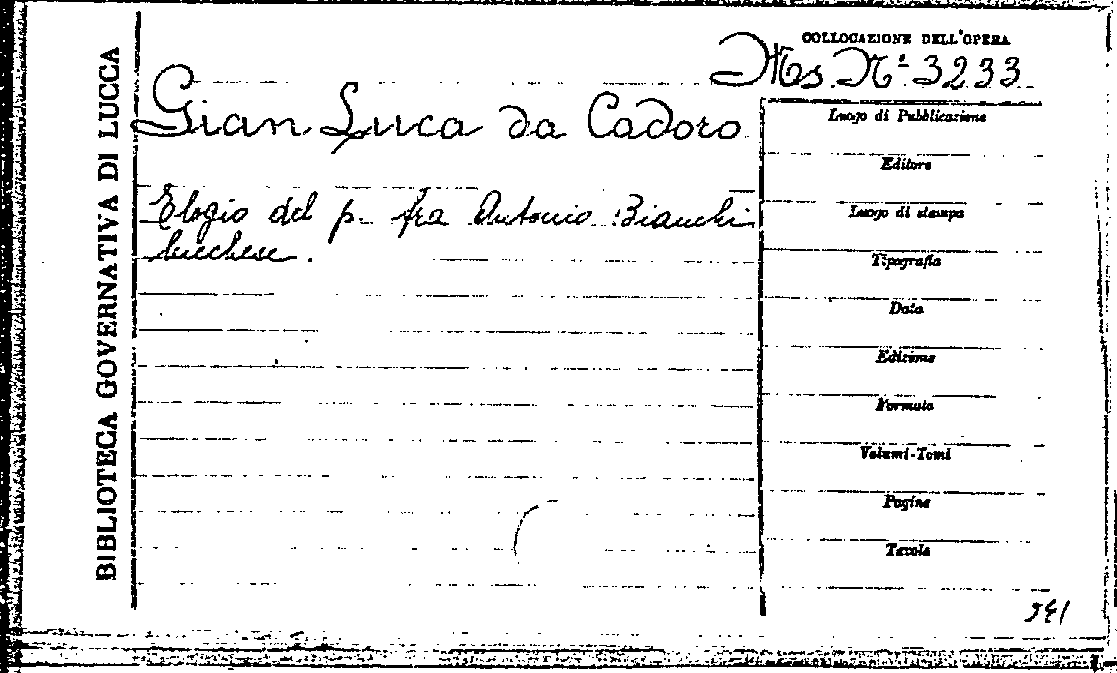 BIBLIOTECA GOVERNATIVA DI LUCCA
COLLOCAZIONE DELL'OPERA
Ms. N.º 3233
Gian Luca da Cadoro
Elogio del p. fra Antonio Bianchi
lucchese.
Luogo di Pubblicazione
Editore
Luogo di stampa
Tipografia
Data
Edizione
Formato
Volumi-Tomi
Pagine
Tavole